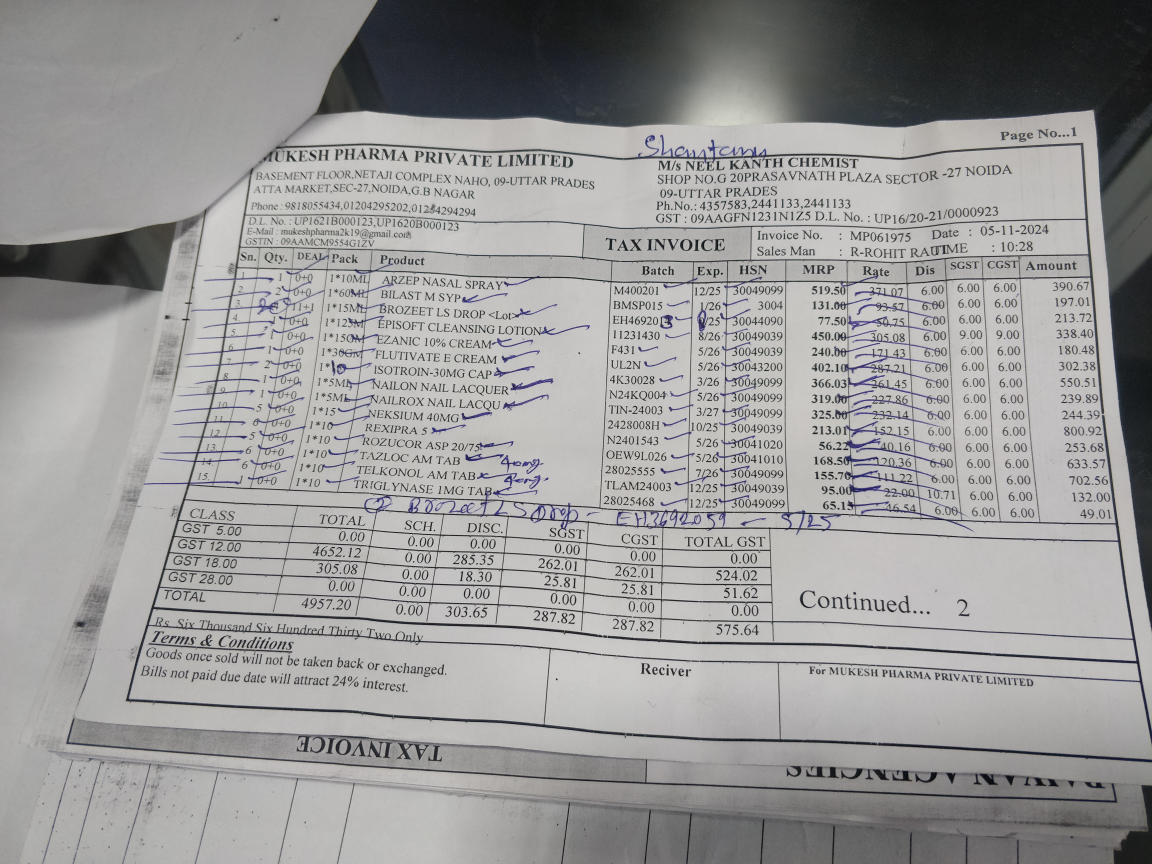 Page No...1
Shantanu
MUKESH PHARMA PRIVATE LIMITED
BASEMENT FLOOR,NETAJI COMPLEX NAHO, 09-UTTAR PRADES
ATTA MARKET,SEC-27,NOIDA,G.B NAGAR
Phone : 9818055434,01204295202,01254294294
D.L. No. : UP1621B000123,UP1620B000123
E-Mail : mukeshpharma2k19@gmail.com
GSTIN : 09AAMCM9554G1ZV
M/s NEEL KANTH CHEMIST
SHOP NO.G 20PRASAVNATH PLAZA SECTOR -27 NOIDA
09-UTTAR PRADES
Ph.No.: 4357583,2441133,2441133
GST : 09AAGFN1231N1Z5 D.L. No. : UP16/20-21/0000923
TAX INVOICE
Invoice No. : MP061975 Date : 05-11-2024
Sales Man : R-ROHIT RAUTIME : 10:28
Sn. Qty. DEAL Pack Product Batch Exp. HSN MRP Rate Dis SGST CGST Amount
1. 1 0+0 1*10ML ARZEP NASAL SPRAY M400201 12/25 30049099 519.50 371.07 6.00 6.00 6.00 390.67
2. 2 0+0 1*60ML BILAST M SYP BMSP015 1/26 3004 131.00 93.57 6.00 6.00 6.00 197.01
3. 11+1 1*15ML BROZEET LS DROP <Lot> EH46920 /25 30044090 77.50 50.75 6.00 6.00 6.00 213.72
4. 1 0+0 1*125M EPISOFT CLEANSING LOTION 11231430 8/26 30049039 450.00 305.08 6.00 9.00 9.00 338.40
5. 1 0+0 1*15GM EZANIC 10% CREAM F431 5/26 30049039 240.00 171.43 6.00 6.00 6.00 180.48
6. 1 0+0 1*30GM FLUTIVATE E CREAM UL2N 5/26 30043200 402.10 287.21 6.00 6.00 6.00 302.38
7. 2 0+0 1*10 ISOTROIN-30MG CAP 4K30028 3/26 30049099 366.03 261.45 6.00 6.00 6.00 550.51
8. 1 0+0 1*5ML NAILON NAIL LACQUER N24KQ004 5/26 30049099 319.00 227.86 6.00 6.00 6.00 239.89
9. 1 0+0 1*5ML NAILROX NAIL LACQU TIN-24003 3/27 30049099 325.00 232.14 6.00 6.00 6.00 244.39
10. 5 0+0 1*15 NEKSIUM 40MG 2428008H 10/25 30049039 213.01 152.15 6.00 6.00 6.00 800.92
11. 6 0+0 1*10 REXIPRA 5 N2401543 5/26 30041020 56.22 40.16 6.00 6.00 6.00 253.68
12. 5 0+0 1*10 ROZUCOR ASP 20/75 OEW9L026 5/26 30041010 168.50 120.36 6.00 6.00 6.00 633.57
13. 6 0+0 1*10 TAZLOC AM TAB 40mg. 28025555 7/26 30049099 155.70 111.22 6.00 6.00 6.00 702.56
14. 6 0+0 1*10 TELKONOL AM TAB 40mg. TLAM24003 12/25 30049039 95.00 22.00 10.71 6.00 6.00 132.00
15. 1 0+0 1*10 TRIGLYNASE 1MG TAB 28025468 12/25 30049099 65.15 46.54 6.00 6.00 6.00 49.01
Brozeet LS Drop - EH3692059 - 5/25
CLASS TOTAL SCH. DISC. SGST CGST TOTAL GST
GST 5.00 0.00 0.00 0.00 0.00 0.00 0.00
GST 12.00 4652.12 0.00 285.35 262.01 262.01 524.02
GST 18.00 305.08 0.00 18.30 25.81 25.81 51.62
GST 28.00 0.00 0.00 0.00 0.00 0.00 0.00
TOTAL 4957.20 0.00 303.65 287.82 287.82 575.64
Continued... 2
Rs. Six Thousand Six Hundred Thirty Two Only
Terms & Conditions
Goods once sold will not be taken back or exchanged.
Bills not paid due date will attract 24% interest.
Reciver
For MUKESH PHARMA PRIVATE LIMITED
TAX INVOICE
PAWAN AGENCIES